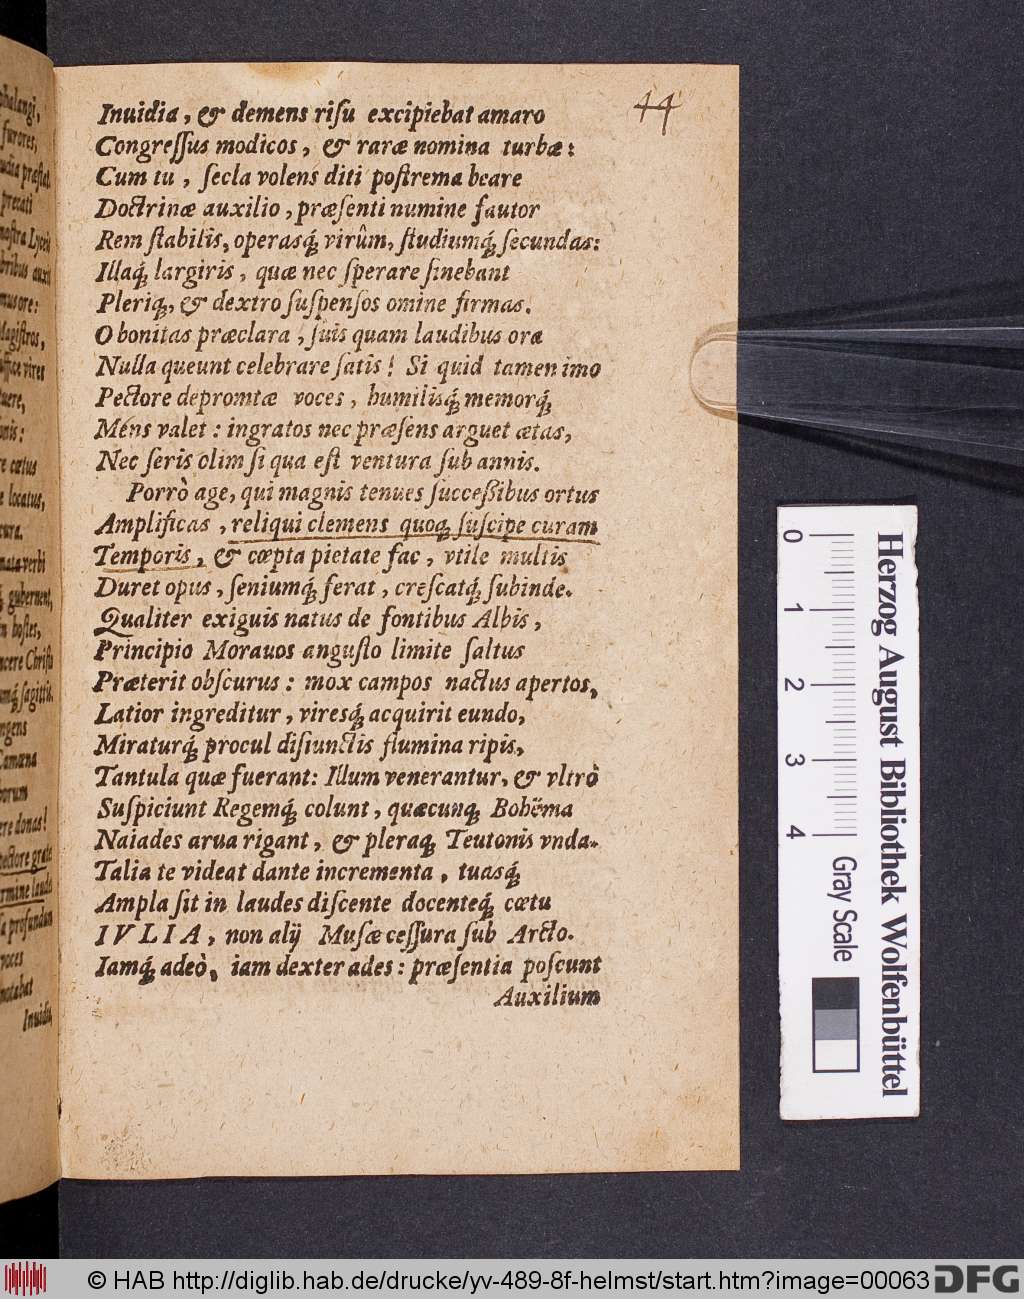 44
Inuidia, & demens riſu excipiebat amaro
Congreſſus modicos, & raræ nomina turbæ:
Cum tu, ſecla volens diti poſtrema beare
Doctrinæ auxilio, præſenti numine fautor
Rem ſtabilis, operasq́; virûm, ſtudiumq́; ſecundas:
Illaq́; largiris, quæ nec ſperare ſinebant
Pleriq;, & dextro ſuſpenſos omine firmas.
O bonitas præclara, ſuis quam laudibus ora
Nulla queunt celebrare ſatis! Si quid tamen imo
Pectore depromtæ voces, humilisq́; memorq́;
Mens valet: ingratos nec præſens arguet ætas,
Nec ſeris olim ſi qua eſt ventura ſub annis.
Porrò age, qui magnis tenues ſucceßibus ortus
Amplificas, reliqui clemens quoq; ſuſcipe curam
Temporis, & cœpta pietate fac, vtile multis
Duret opus, ſeniumq́; ferat, creſcatq́; ſubinde.
Qualiter exiguis natus de fontibus Albis,
Principio Morauos anguſto limite ſaltus
Præterit obſcurus: mox campos nactus apertos,
Latior ingreditur, viresq́; acquirit eundo,
Miraturq́; procul diſiunctis flumina ripis,
Tantula quæ fuerant: Illum venerantur, & vltrò
Suſpiciunt Regemq́; colunt, quæcunq; Bohëma
Naiades arua rigant, & pleraq; Teutonis vnda.
Talia te videat dante incrementa, tuasq́;
Ampla ſit in laudes diſcente docenteq́; cœtu
IVLIA, non alij Muſæ ceſſura ſub Arcto.
Iamq́; adeò, iam dexter ades: præſentia poſcunt
Auxilium
phalangi,
furores,
præſtat
precati
noſtra Lyceis
auxit
mus ore:
Magiſtros,
vires
tuere,
onis:
re cœtus
e locatus,
cura.
nata verbi
gubernent,
in hoſtes,
ncere Chriſtu
umq́; ſagittis.
ngens
Camœna
porum
ere donas!
pectore grates
carmine laudes
ſa profundam
voces
notabat
Inuidia,
Herzog August Bibliothek Wolfenbüttel
0 1 2 3 4
Gray Scale
© HAB http://diglib.hab.de/drucke/yv-489-8f-helmst/start.htm?image=00063
DFG